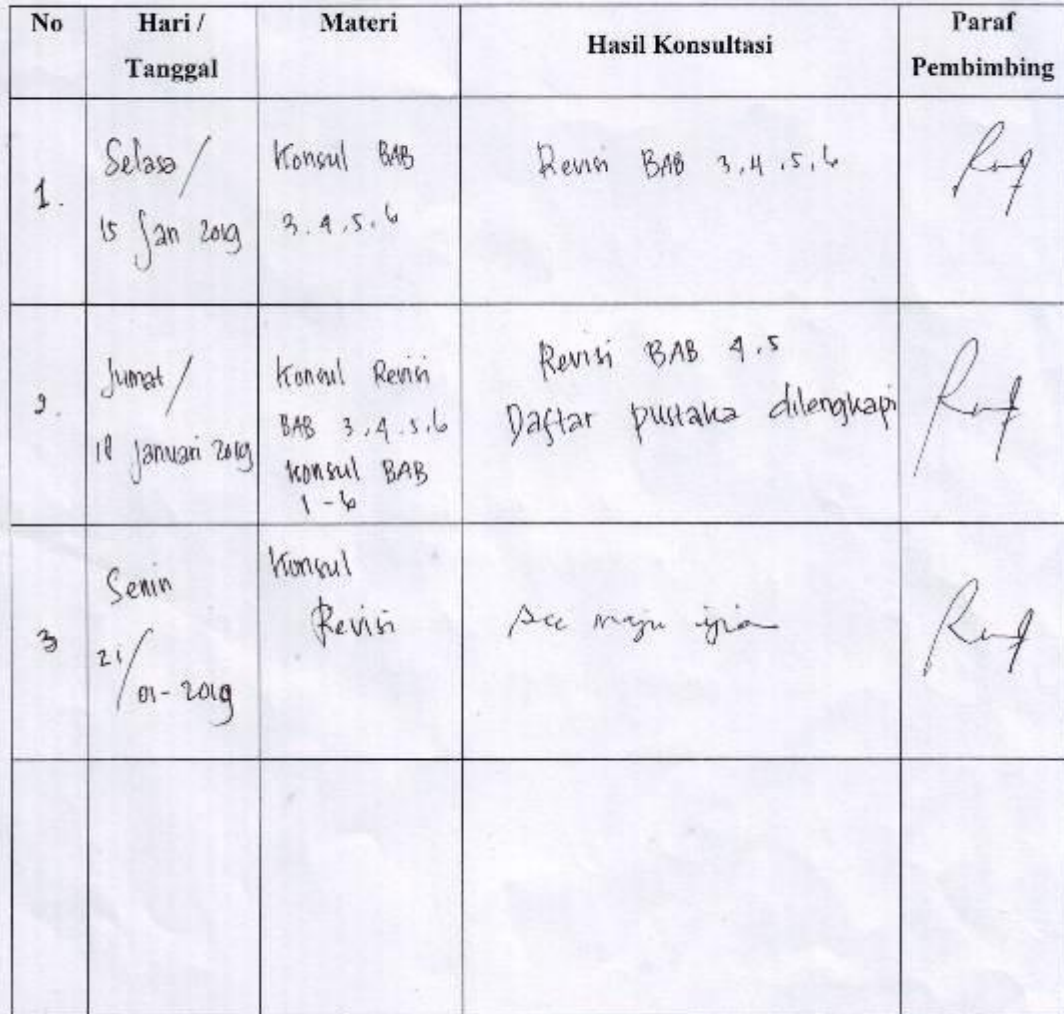 No Hari / Tanggal Materi Hasil Konsultasi Paraf Pembimbing
1.
Selasa /
15 Jan 2019
Konsul BAB
3.4.5.6
Revisi BAB 3.4.5.6
2.
Jumat /
18 Januari 2019
Konsul Revisi
BAB 3.4.5.6
Konsul BAB
1-6
Revisi BAB 4.5
Daftar pustaka dilengkapi
3
Senin
21/
01-2019
Konsul
Revisi
Acc maju ujian